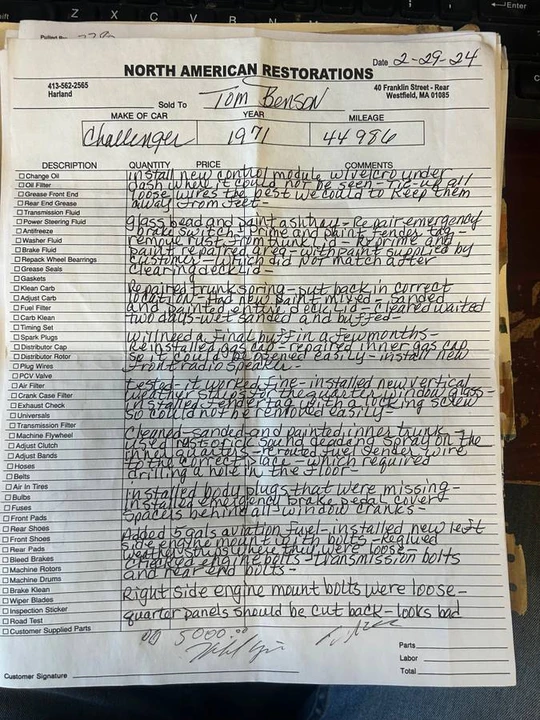 Date 2-29-24
NORTH AMERICAN RESTORATIONS
413-562-2565
Harland
40 Franklin Street - Rear
Westfield, MA 01085
Sold To Tom Benson
MAKE OF CAR YEAR MILEAGE
Challenger 1971 44986
DESCRIPTION QUANTITY PRICE COMMENTS
Change Oil
Oil Filter
Grease Front End
Rear End Grease
Transmission Fluid
Power Steering Fluid
Antifreeze
Washer Fluid
Brake Fluid
Repack Wheel Bearings
Grease Seals
Gaskets
Klean Carb
Adjust Carb
Fuel Filter
Carb Klean
Timing Set
Spark Plugs
Distributor Cap
Distributor Rotor
Plug Wires
PCV Valve
Air Filter
Crank Case Filter
Exhaust Check
Universals
Transmission Filter
Machine Flywheel
Adjust Clutch
Adjust Bands
Hoses
Belts
Air In Tires
Bulbs
Fuses
Front Pads
Rear Shoes
Front Shoes
Rear Pads
Bleed Brakes
Machine Rotors
Machine Drums
Brake Klean
Wiper Blades
Inspection Sticker
Road Test
Customer Supplied Parts
install new control module w/velcro under
dash where it could not be seen - Tie-up all
loose wires the best we could to keep them
away from feet -
glass bead and paint - Repair emergency
brake switch - prime and paint fender tag -
remove rust from trunk lid - Reprime and
paint repaired area - with paint supplied by
customer - which did not match after
clearing deck lid -
Repaired trunk spring - put back in correct
location - Had new paint mixed - sanded
and painted entire deck lid - cleared waited
two days - wet sanded and buffed -
will need a final buff in a few months -
reinstalled gas cap - repaired inner gas cap
so it could be opened easily - install new
front radio speaker -
tested - it worked fine - installed new vertical
weather strips for the quarter window glass -
installed fender tag with a locking screw
so could not be removed easily -
Cleaned - sanded and painted inner trunk -
used restorick sound deading spray on the
inner quarters - rerouted fuel sender wire
to the correct place - which required
drilling a hole in the floor -
Installed body plugs that were missing -
installed emergency brake pedal cover -
spacers behind all window cranks -
Added 5 gals aviation fuel - installed new left
side engine mount with bolts - Reglued
weatherstrips where they were loose -
checked engine bolts - transmission bolts
and rear end bolts -
Right side engine mount bolts were loose -
quarter panels should be cut back - looks bad
5000.00
Parts
Labor
Total
Customer Signature